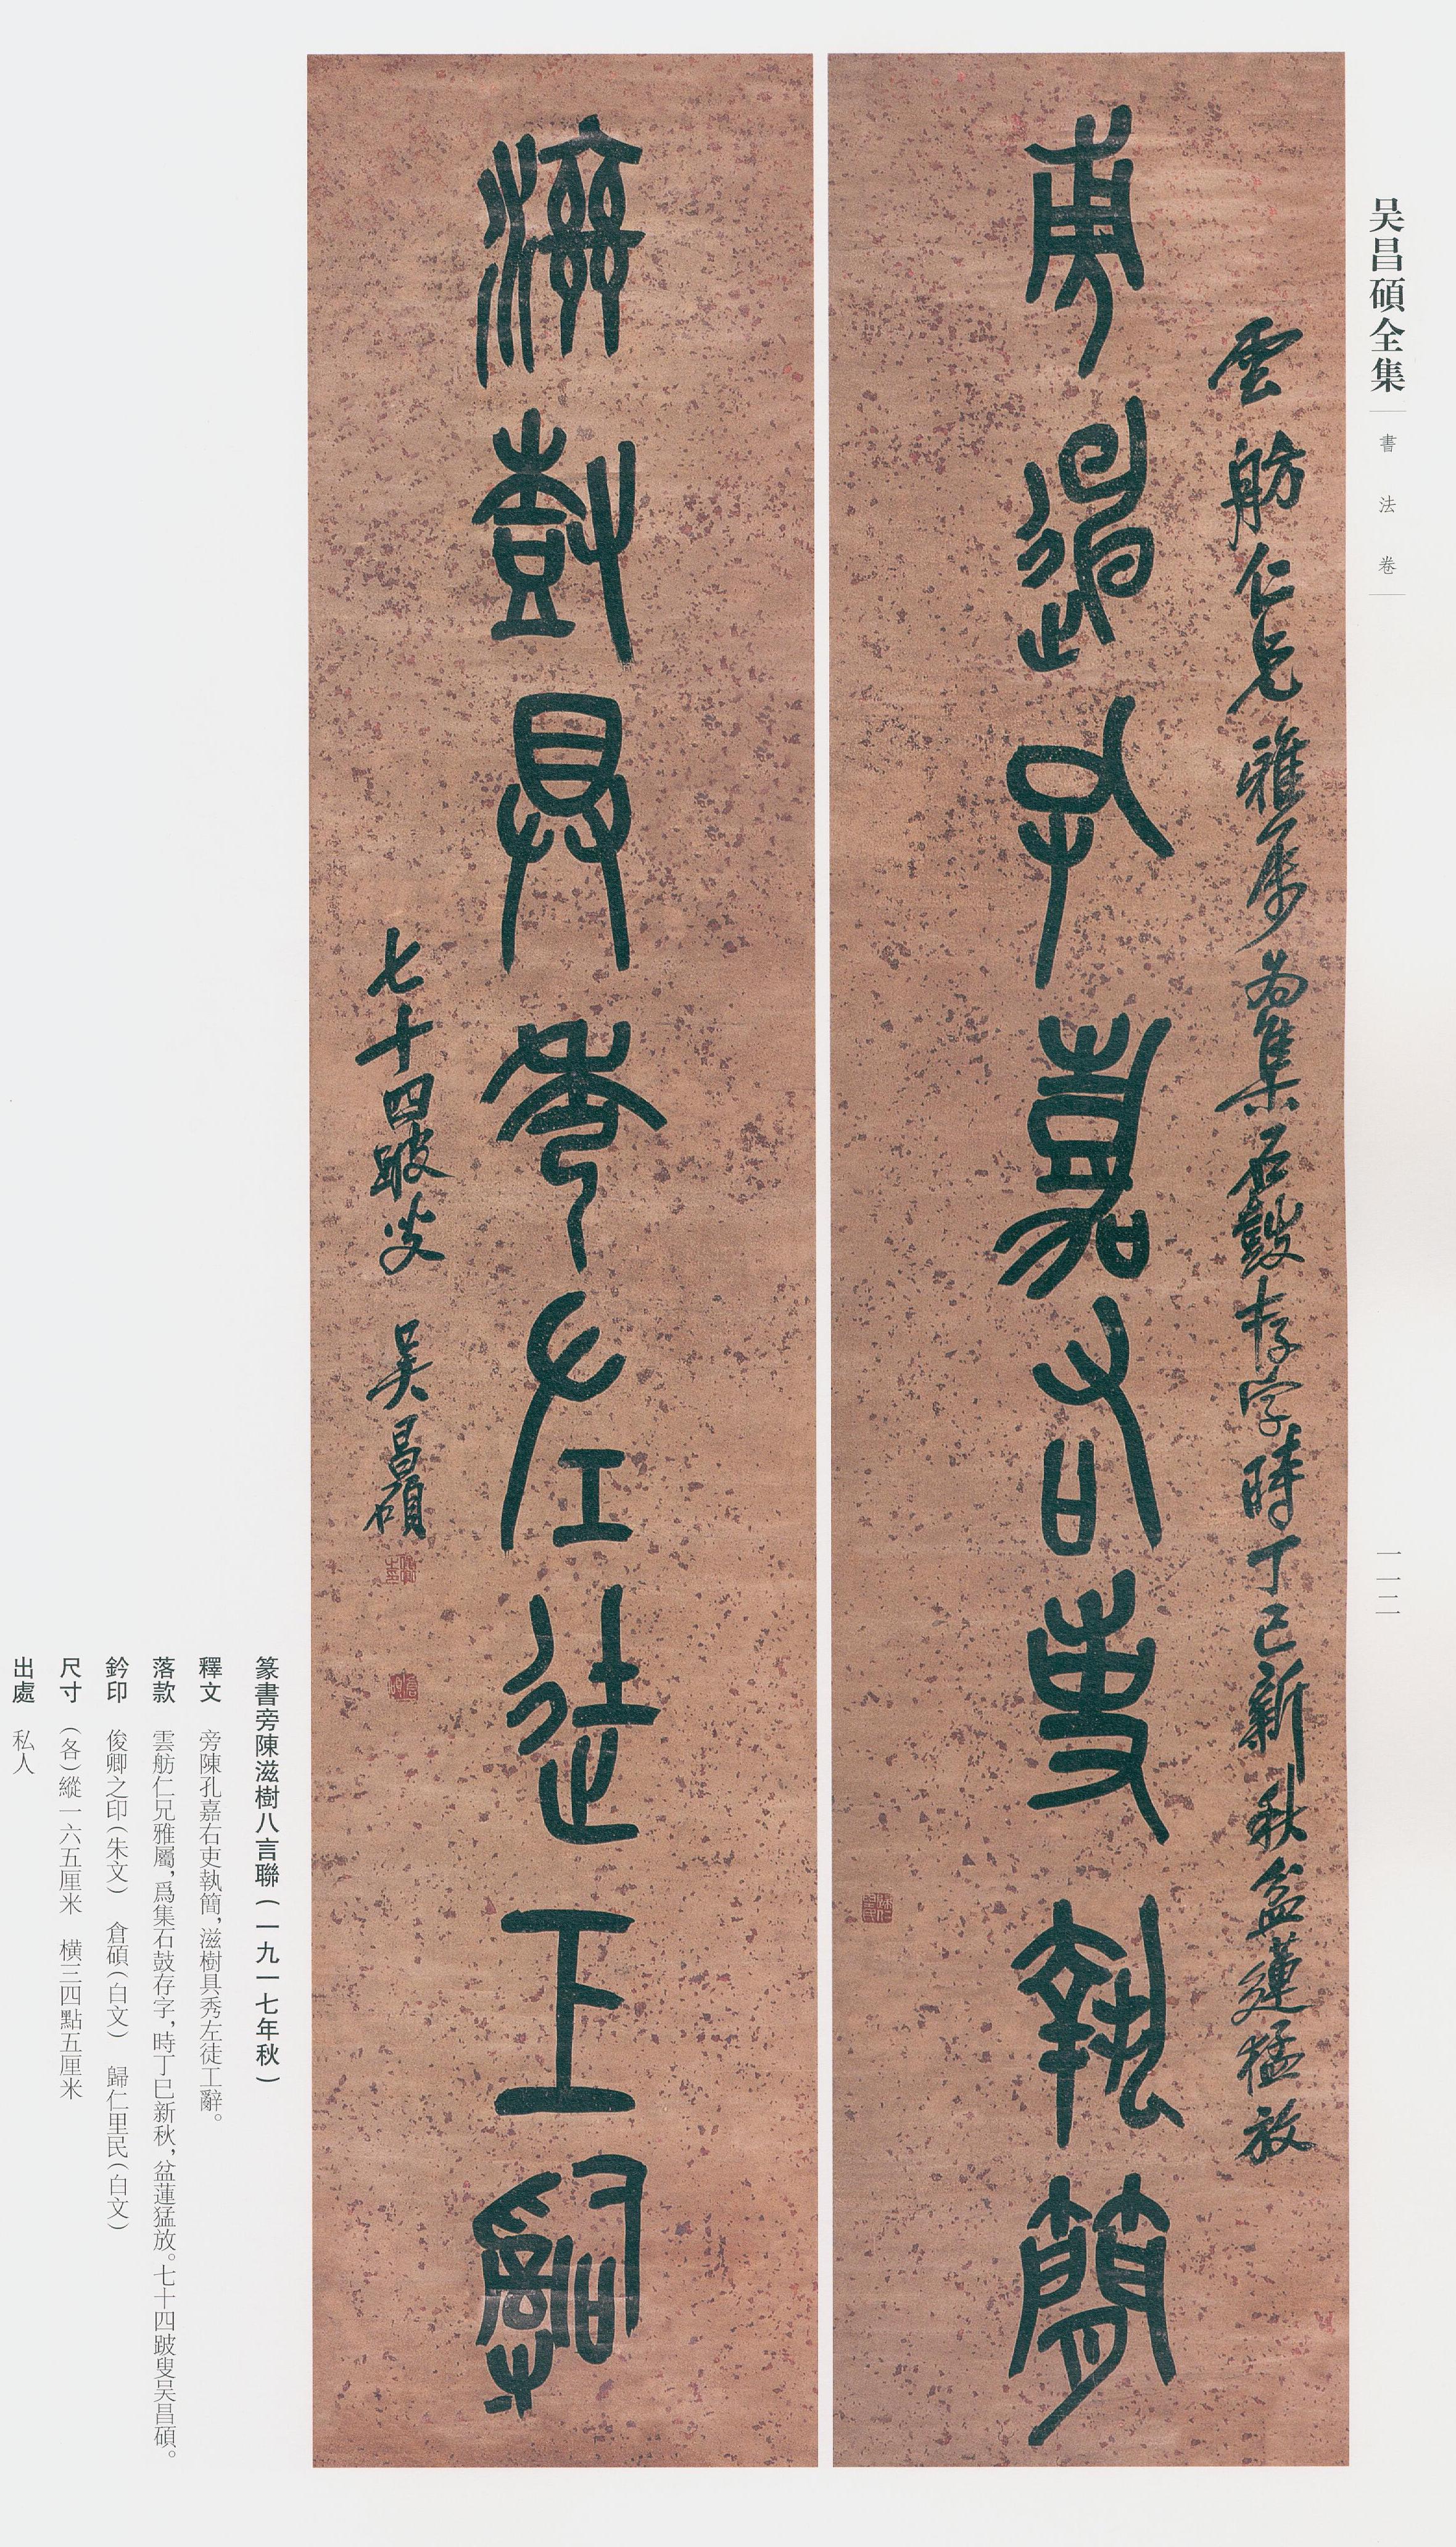 吴昌碩全集
書法卷
一一二
雲舫仁兄雅屬為集石鼓存字時丁巳新秋盆蓮猛放
旁陳孔嘉右吏執簡
歸仁里民
滋樹具秀左徒工辭
七十四跛叟 吳昌碩
俊卿之印
倉碩
篆書旁陳滋樹八言聯(一九一七年秋)
釋文 旁陳孔嘉右吏執簡,滋樹具秀左徒工辭。
落款 雲舫仁兄雅屬,爲集石鼓存字,時丁巳新秋,盆蓮猛放。七十四跛叟吴昌碩。
鈐印 俊卿之印(朱文) 倉碩(白文) 歸仁里民(白文)
尺寸 (各)縱一六五厘米 橫三四點五厘米
出處 私人